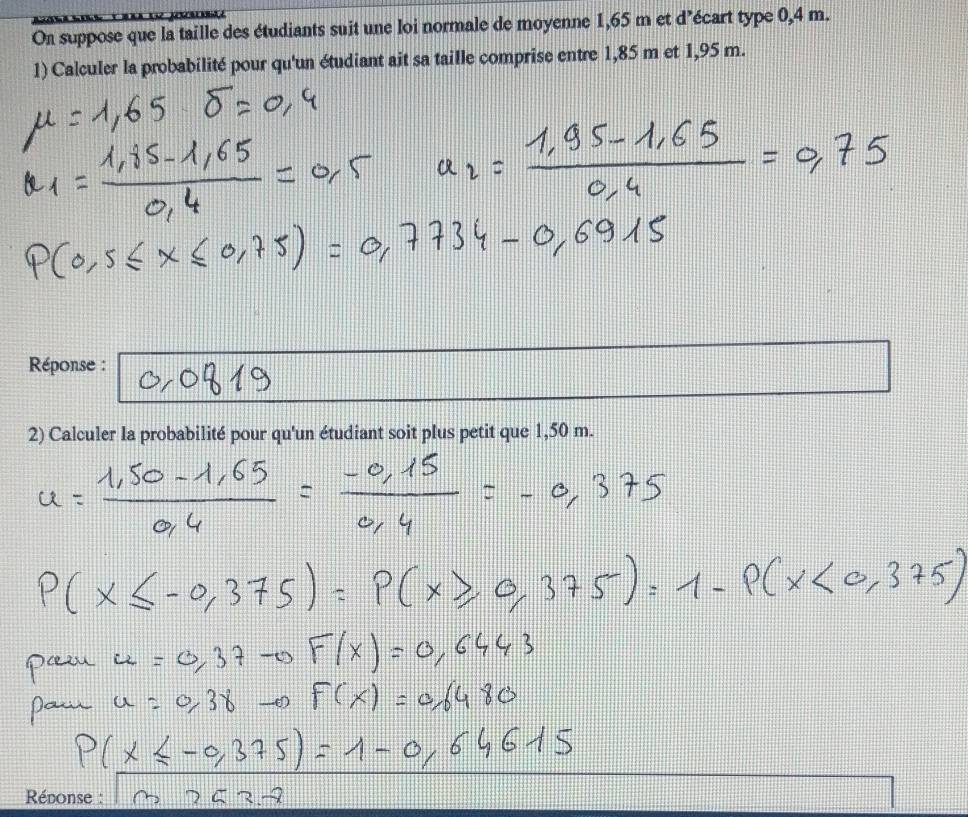 On suppose que la taille des étudiants suit une loi normale de moyenne 1,65 m et d'écart type 0,4 m.
1) Calculer la probabilité pour qu'un étudiant ait sa taille comprise entre 1,85 m et 1,95 m.
μ = 1,65 δ = 0,4
u1 = (1,85 - 1,65) / 0,4 = 0,5 u2 = (1,95 - 1,65) / 0,4 = 0,75
P(0,5 ≤ x ≤ 0,75) = 0,7734 - 0,6915
Réponse : 0,0819
2) Calculer la probabilité pour qu'un étudiant soit plus petit que 1,50 m.
u = (1,50 - 1,65) / 0,4 = (-0,15) / 0,4 = - 0,375
P(x ≤ -0,375) = P(x ≥ 0,375) = 1 - P(x < 0,375)
pour u = 0,37 → F(x) = 0,6443
pour u = 0,38 → F(x) = 0,6480
P(x ≤ -0,375) = 1 - 0,64615
Réponse :